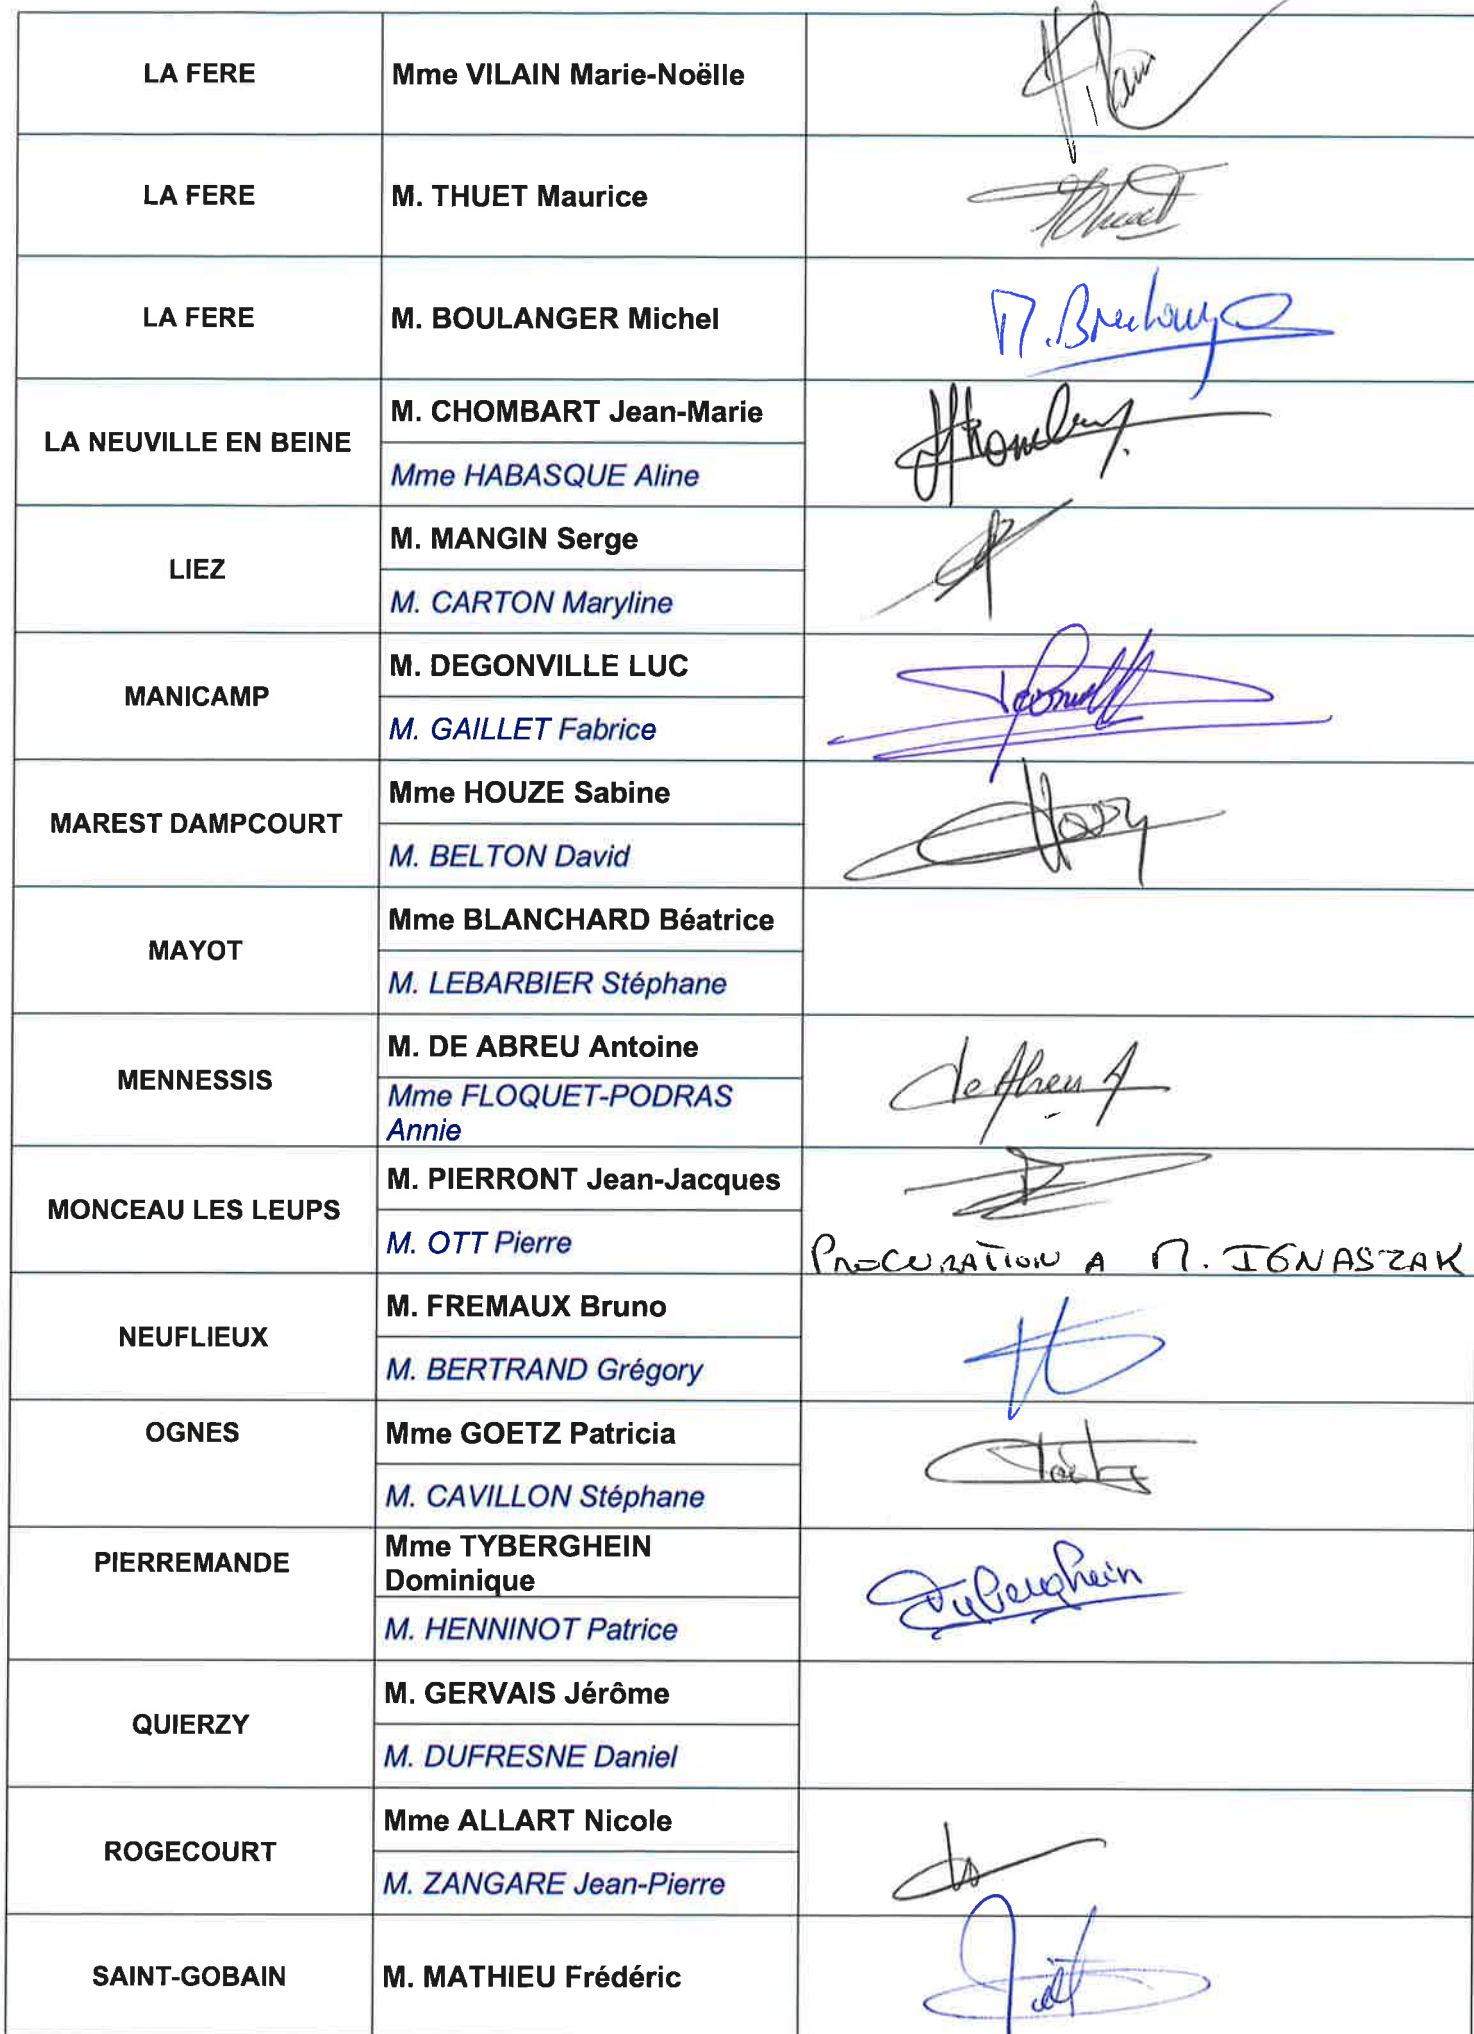 LA FERE
Mme VILAIN Marie-Noëlle
LA FERE
M. THUET Maurice
LA FERE
M. BOULANGER Michel
LA NEUVILLE EN BEINE
M. CHOMBART Jean-Marie
Mme HABASQUE Aline
LIEZ
M. MANGIN Serge
M. CARTON Maryline
MANICAMP
M. DEGONVILLE LUC
M. GAILLET Fabrice
MAREST DAMPCOURT
Mme HOUZE Sabine
M. BELTON David
MAYOT
Mme BLANCHARD Béatrice
M. LEBARBIER Stéphane
MENNESSIS
M. DE ABREU Antoine
Mme FLOQUET-PODRAS
Annie
de Abreu A
MONCEAU LES LEUPS
M. PIERRONT Jean-Jacques
M. OTT Pierre
PROCURATION A M. IGNASZAK
NEUFLIEUX
M. FREMAUX Bruno
M. BERTRAND Grégory
OGNES
Mme GOETZ Patricia
M. CAVILLON Stéphane
PIERREMANDE
Mme TYBERGHEIN
Dominique
M. HENNINOT Patrice
Tyberghein
QUIERZY
M. GERVAIS Jérôme
M. DUFRESNE Daniel
ROGECOURT
Mme ALLART Nicole
M. ZANGARE Jean-Pierre
SAINT-GOBAIN
M. MATHIEU Frédéric